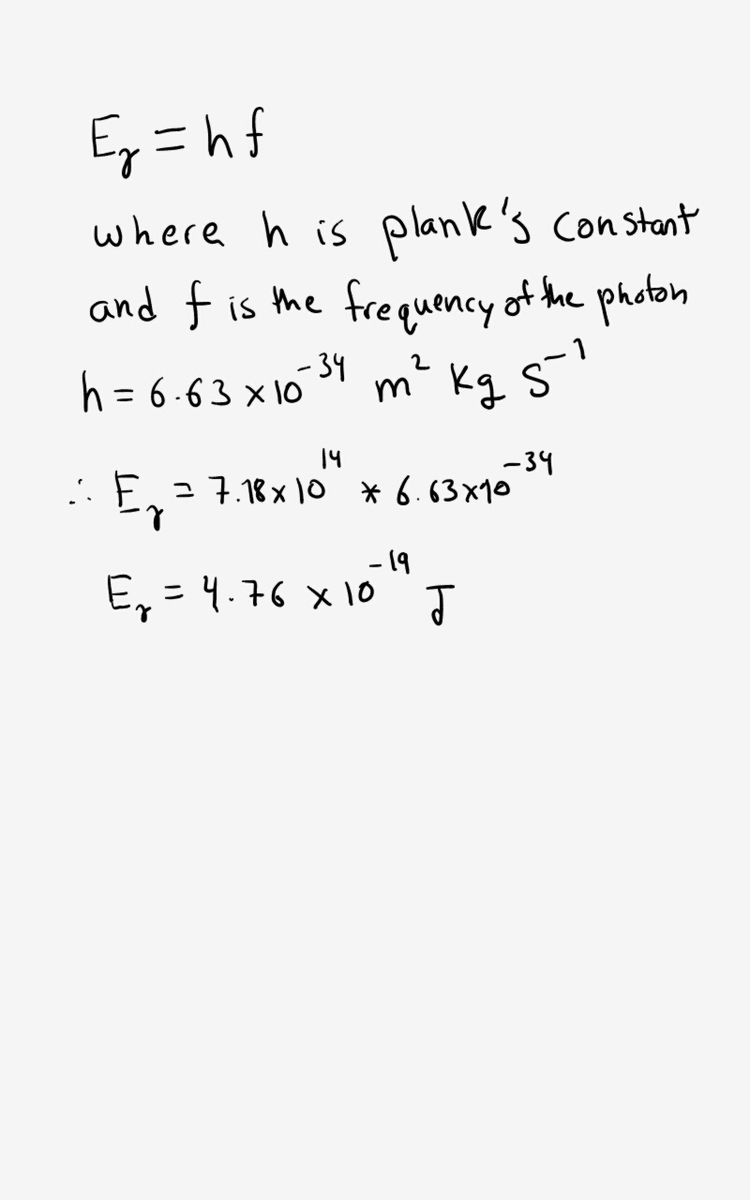 Eᵧ = h f
where h is plank's constant
and f is the frequency of the photon
h = 6.63 × 10⁻³⁴ m² Kg S⁻¹
∴ Eᵧ = 7.18 × 10¹⁴ * 6.63 × 10⁻³⁴
Eᵧ = 4.76 × 10⁻¹⁹ J